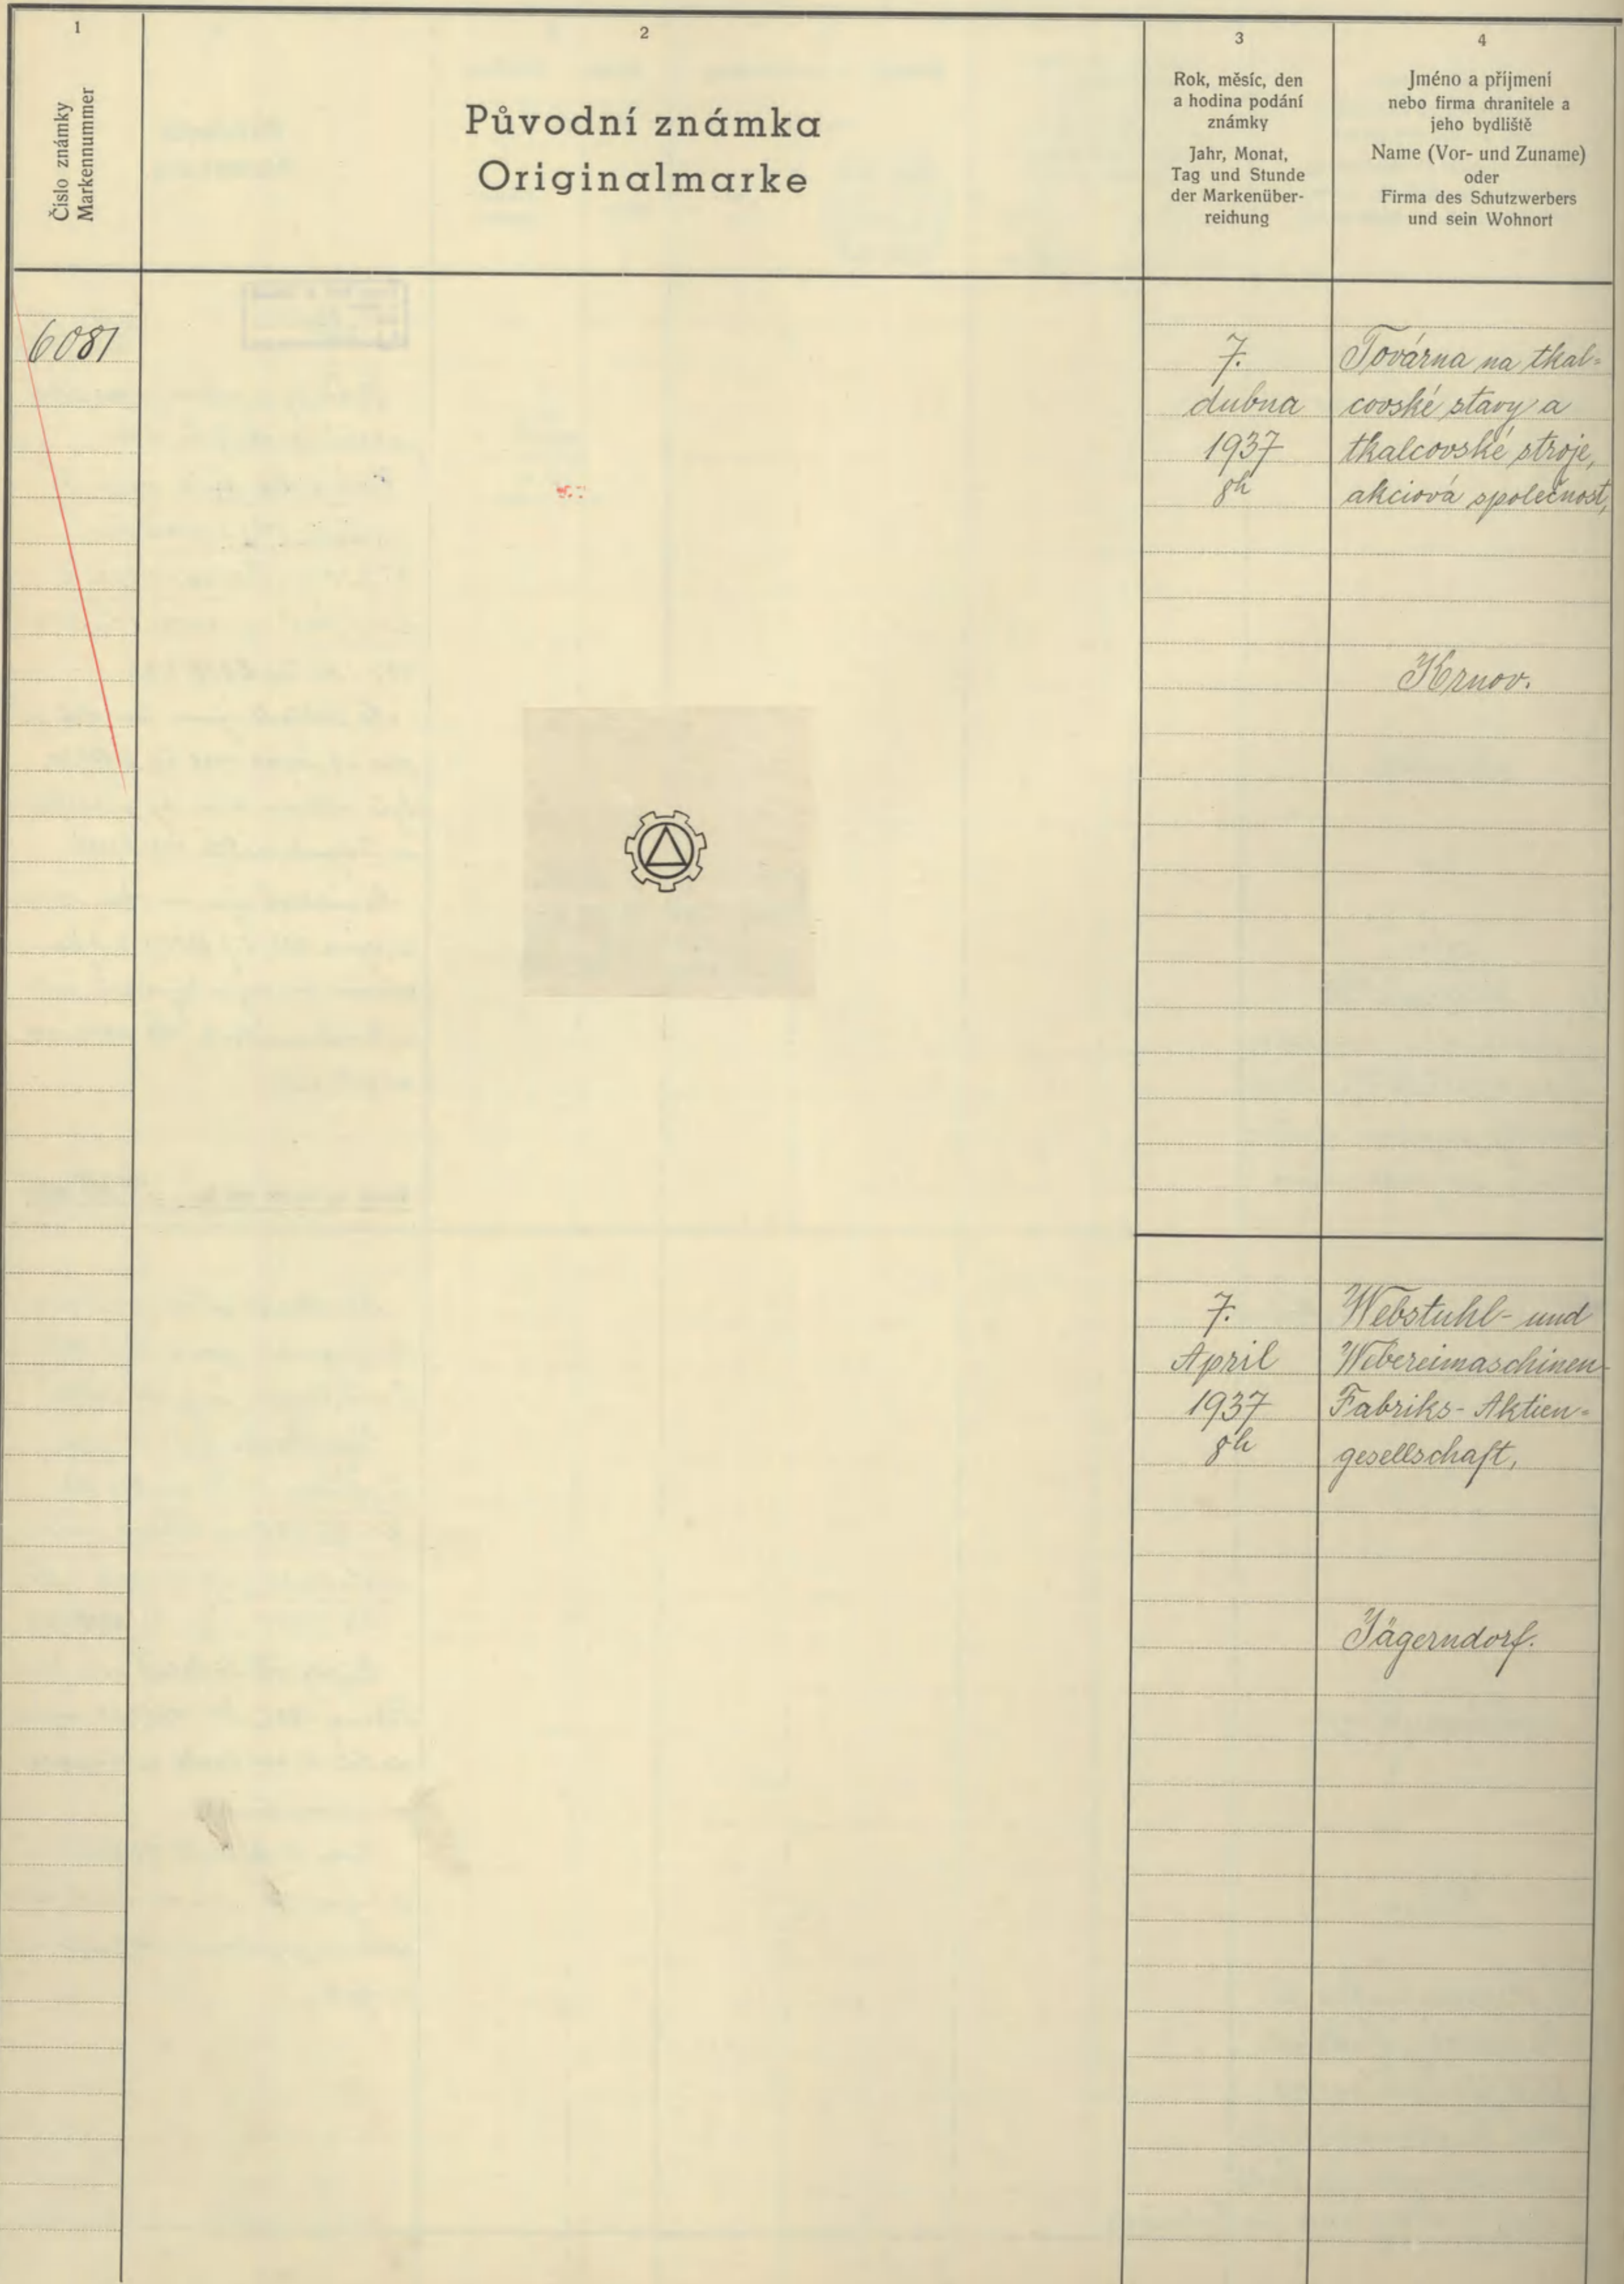 1
Číslo známky
Markennummer
2
Původní známka
Originalmarke
3
Rok, měsíc, den
a hodina podání
známky
Jahr, Monat,
Tag und Stunde
der Markenüber-
reichung
4
Jméno a příjmení
nebo firma chranitele a
jeho bydliště
Name (Vor- und Zuname)
oder
Firma des Schutzwerbers
und sein Wohnort
6081
7.
dubna
1937
8h
Továrna na tkal=
covské stavy a
tkalcovské stroje,
akciová společnost,
Krnov.
7.
April
1937
8h
Webstuhl- und
Webereimaschinen-
Fabriks-Aktien=
gesellschaft,
Jägerndorf.